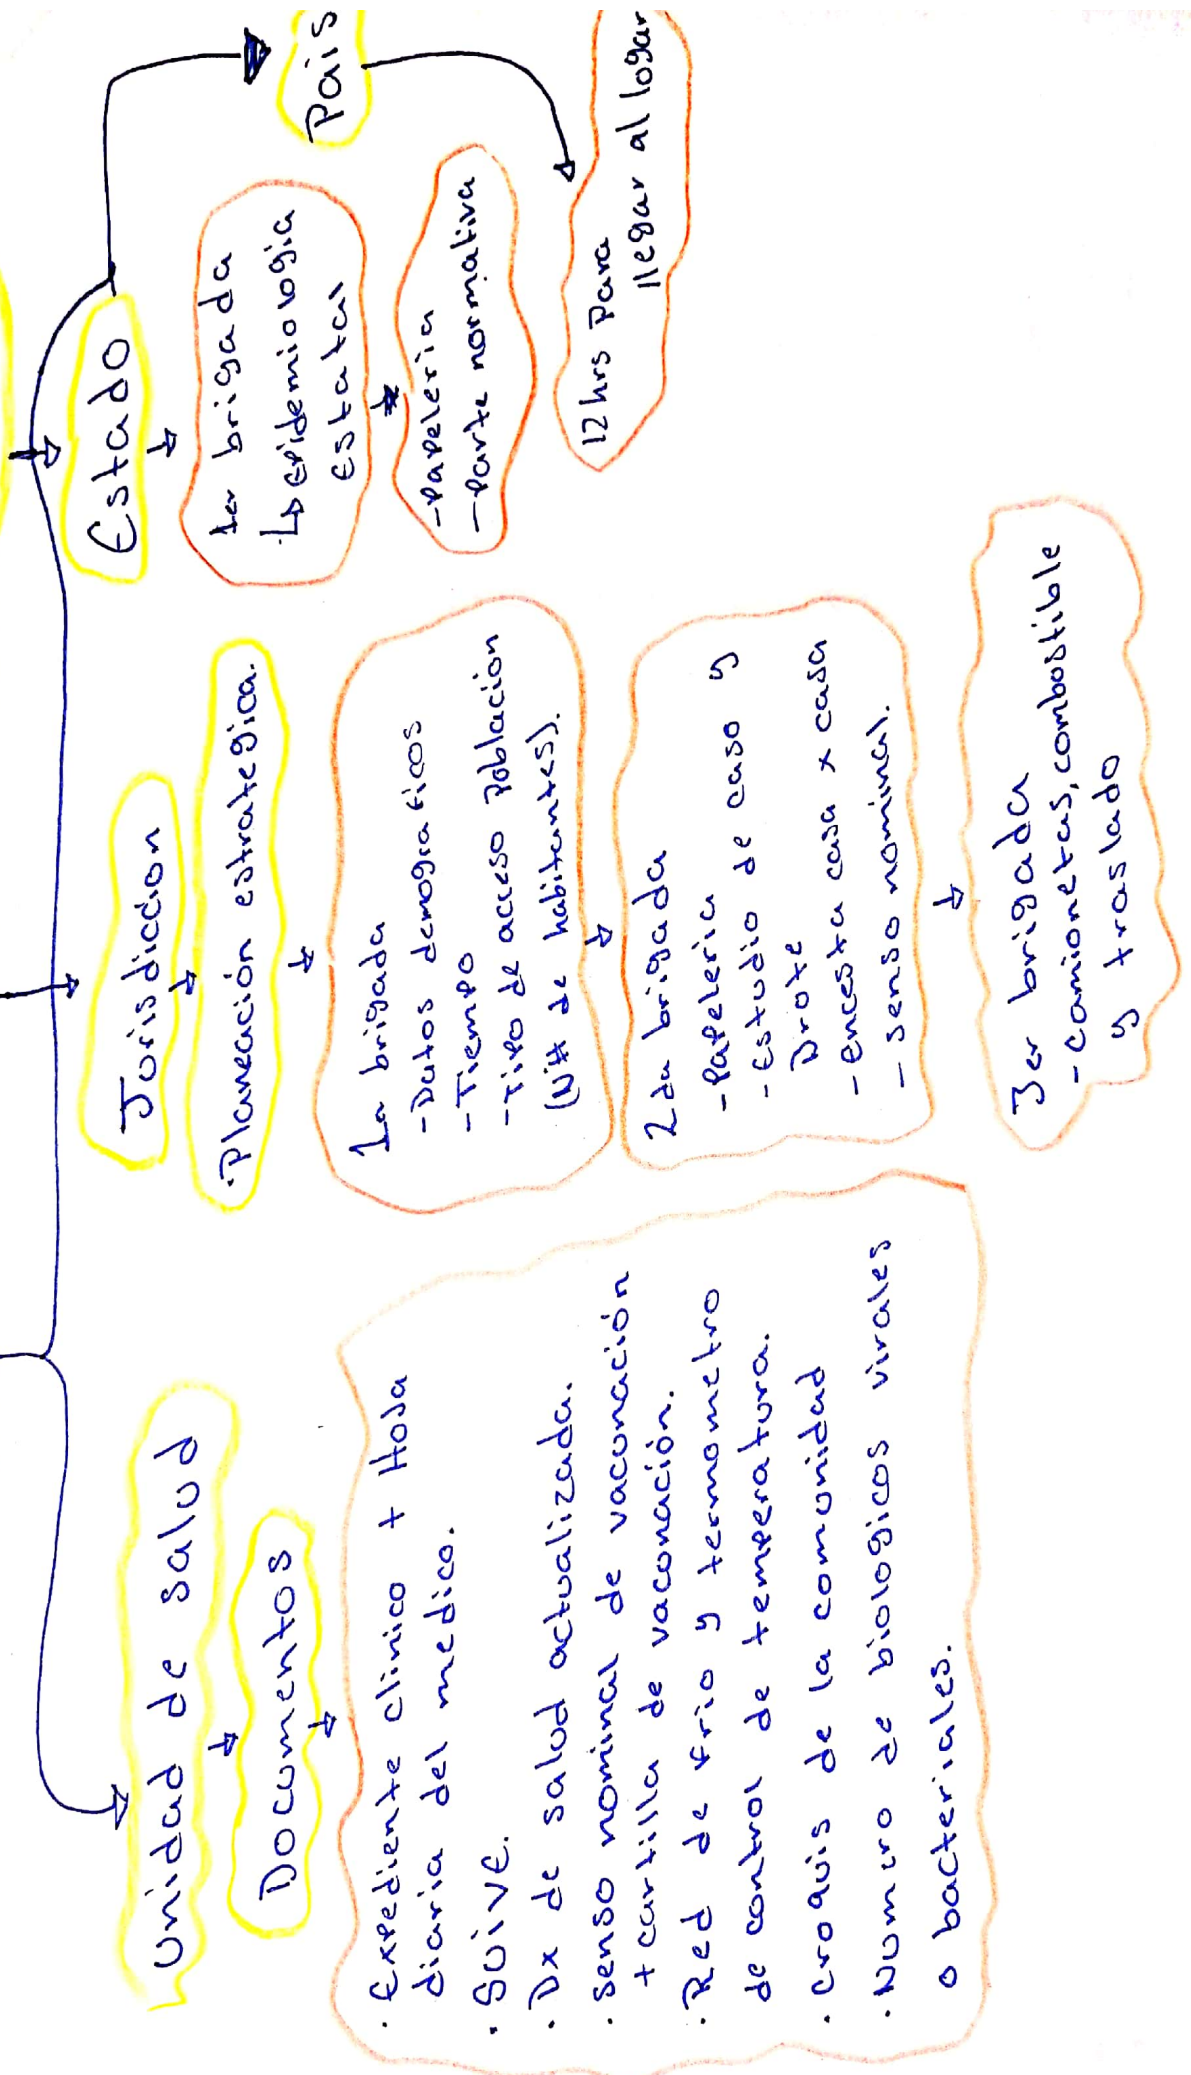 Unidad de salud
Documentos
· Expediente clinico + Hoja
diaria del medico.
· SUIVE.
· Dx de salud actualizada.
· senso nominal de vacunación
+ cartilla de vacunación.
· Red de frio y termometro
de control de temperatura.
· croquis de la comunidad
· Numero de biologicos virales
o bacteriales.
Jurisdiccion
·Planeación estrategica.
1a brigada
- Datos demograficos
- Tiempo
- Tipo de acceso poblacion
(N# de habitantes).
2da brigada
- Papeleria
- Estudio de caso y
Brote
- encesta casa x casa
- senso nominal.
3er brigada
- camionetas, combustible
y traslado
Estado
1er brigada
↳ Epidemiologia
Estatal
- Papeleria
- Parte normativa
Pais
12 hrs Para
llegar al lugar